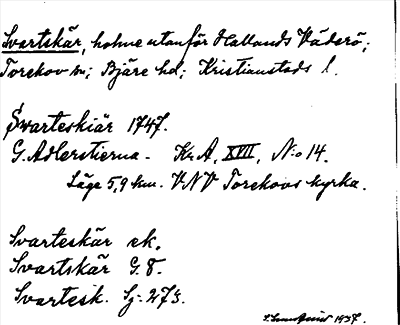 Svartskär, holme utanför Hallands Väderö;
Torekov sn; Bjäre hd; Kristianstads l.
Swarteskiär 1747.
G. Adlerstierna. Kr. A, XVII, N:o 14.
Läge 5,9 km. VNV Torekovs kyrka.
Svarteskär ek.
Svartskär G. 8.
Svartesk. Sj. 275.
1937.